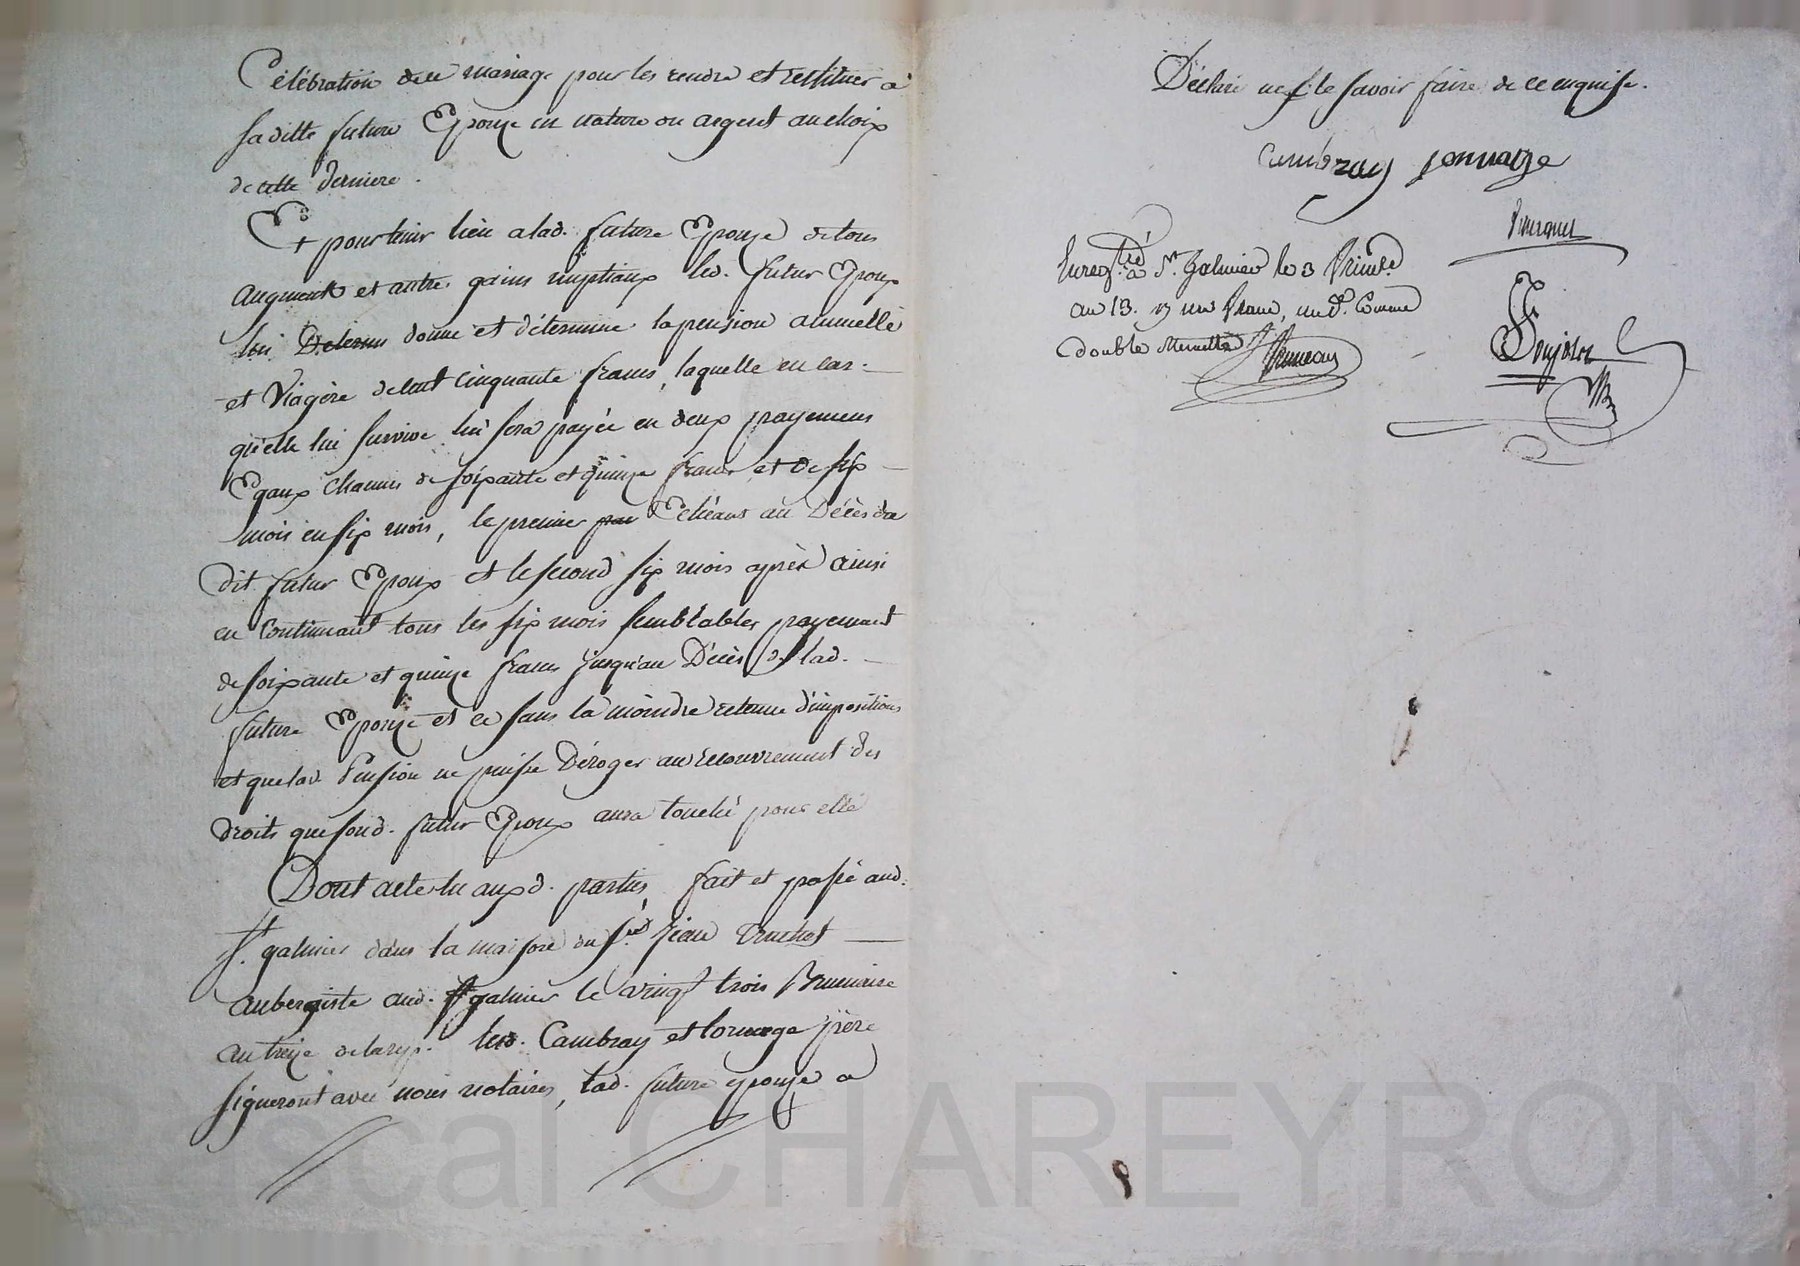 Célébration de ce mariage pour les rendre et restituer a
sa ditte future Epouze en nature ou argent au choix
de cette derniere.
Et pour tenir lieu a lad. future Epouze de tous
augment et autres gains nuptiaux led. futur Epoux
lui donne et détermine la pension annuelle
et Viagère de cent cinquante francs, laquelle en cas
qu'elle lui survive lui sera payée en deux payemens
Egaux chacuns de soixante et quinze francs et de six
mois en six mois, le premier par Echéant au Décès du
dit futur Epoux et le second six mois après ainsi
en continuant tous les six mois semblables payement
de soixante et quinze francs jusqu'au Décès de lad.
future Epouze et ce sans la moindre retenue d'impositions
et que lad. Pension ne puisse Déroger au recouvrement des
droits que sond. futur Epoux aura touché pour elle
Dont acte lu auxd. parties, fait et passé aud.
St. galmier dans la maison du Sr. Jean Truchet
aubergiste aud. St galmier le vingt trois Brumaire
an treize de la rep. Led. Cambray et père
signeront avec nous notaires, lad. future epouze a
Déclaré ne le savoir faire de ce enquise.
Cambray
Enregtré a St. Galmier le 3 frimre
an 13. un franc, un d. Comme
double
Pascal CHAREYRON